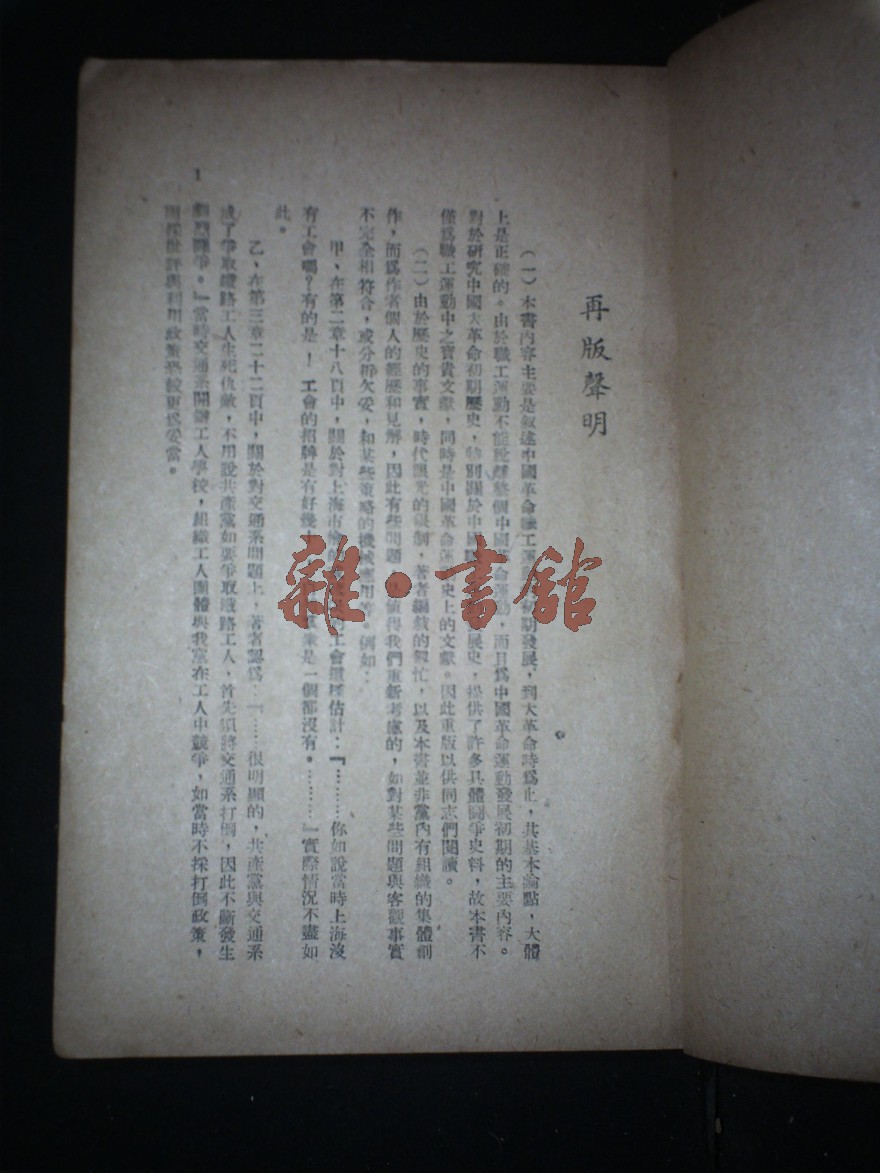 再版聲明
（一）本書內容主要是叙述中國革命職工運初期發展，到大革命時爲止，其基本論點，大體
上是正確的。由於職工運動不能脫離整個中國革命運而且爲中國革命運動發展初期的主要內容。
對於研究中國大革命初期歷史，特別關於中國展史，提供了許多具體鬪爭史料，故本書不
僅爲職工運動中之寶貴文獻，同時是中國革命運史上的文獻。因此重版以供同志們閱讀。
（二）由於歷史的事實，時代眼光的限制，著者編裁的匆忙，以及本書並非黨內有組織的集體創
作，而爲作者個人的經歷和見解，因此有些問題值得我們重新考慮的，如對某些問題與客觀事實
不完全相符合，或分析欠妥，和某些策略的機械運用等。例如：
甲、在第二章十八頁中，關於對上海市的工會這樣估計：『………你如說當時上海沒
有工會嗎？有的是！工會的招牌是有好幾業是一個都沒有。………』實際情況不盡如
此。
乙、在第三章二十二頁中，關於對交通系問題上，著者認爲：『……很明顯的，共產黨與交通系
成了爭取鐵路工人生死仇敵，不用說共產黨如要爭取鐵路工人，首先須將交通系打倒，因此不斷發生
劇烈鬪爭。』當時交通系開辦工人學校，組織工人團體與我黨在工人中競爭，如當時不採打倒政策，
而採批評與利用政策恐較更爲妥當。
1
雜·書館